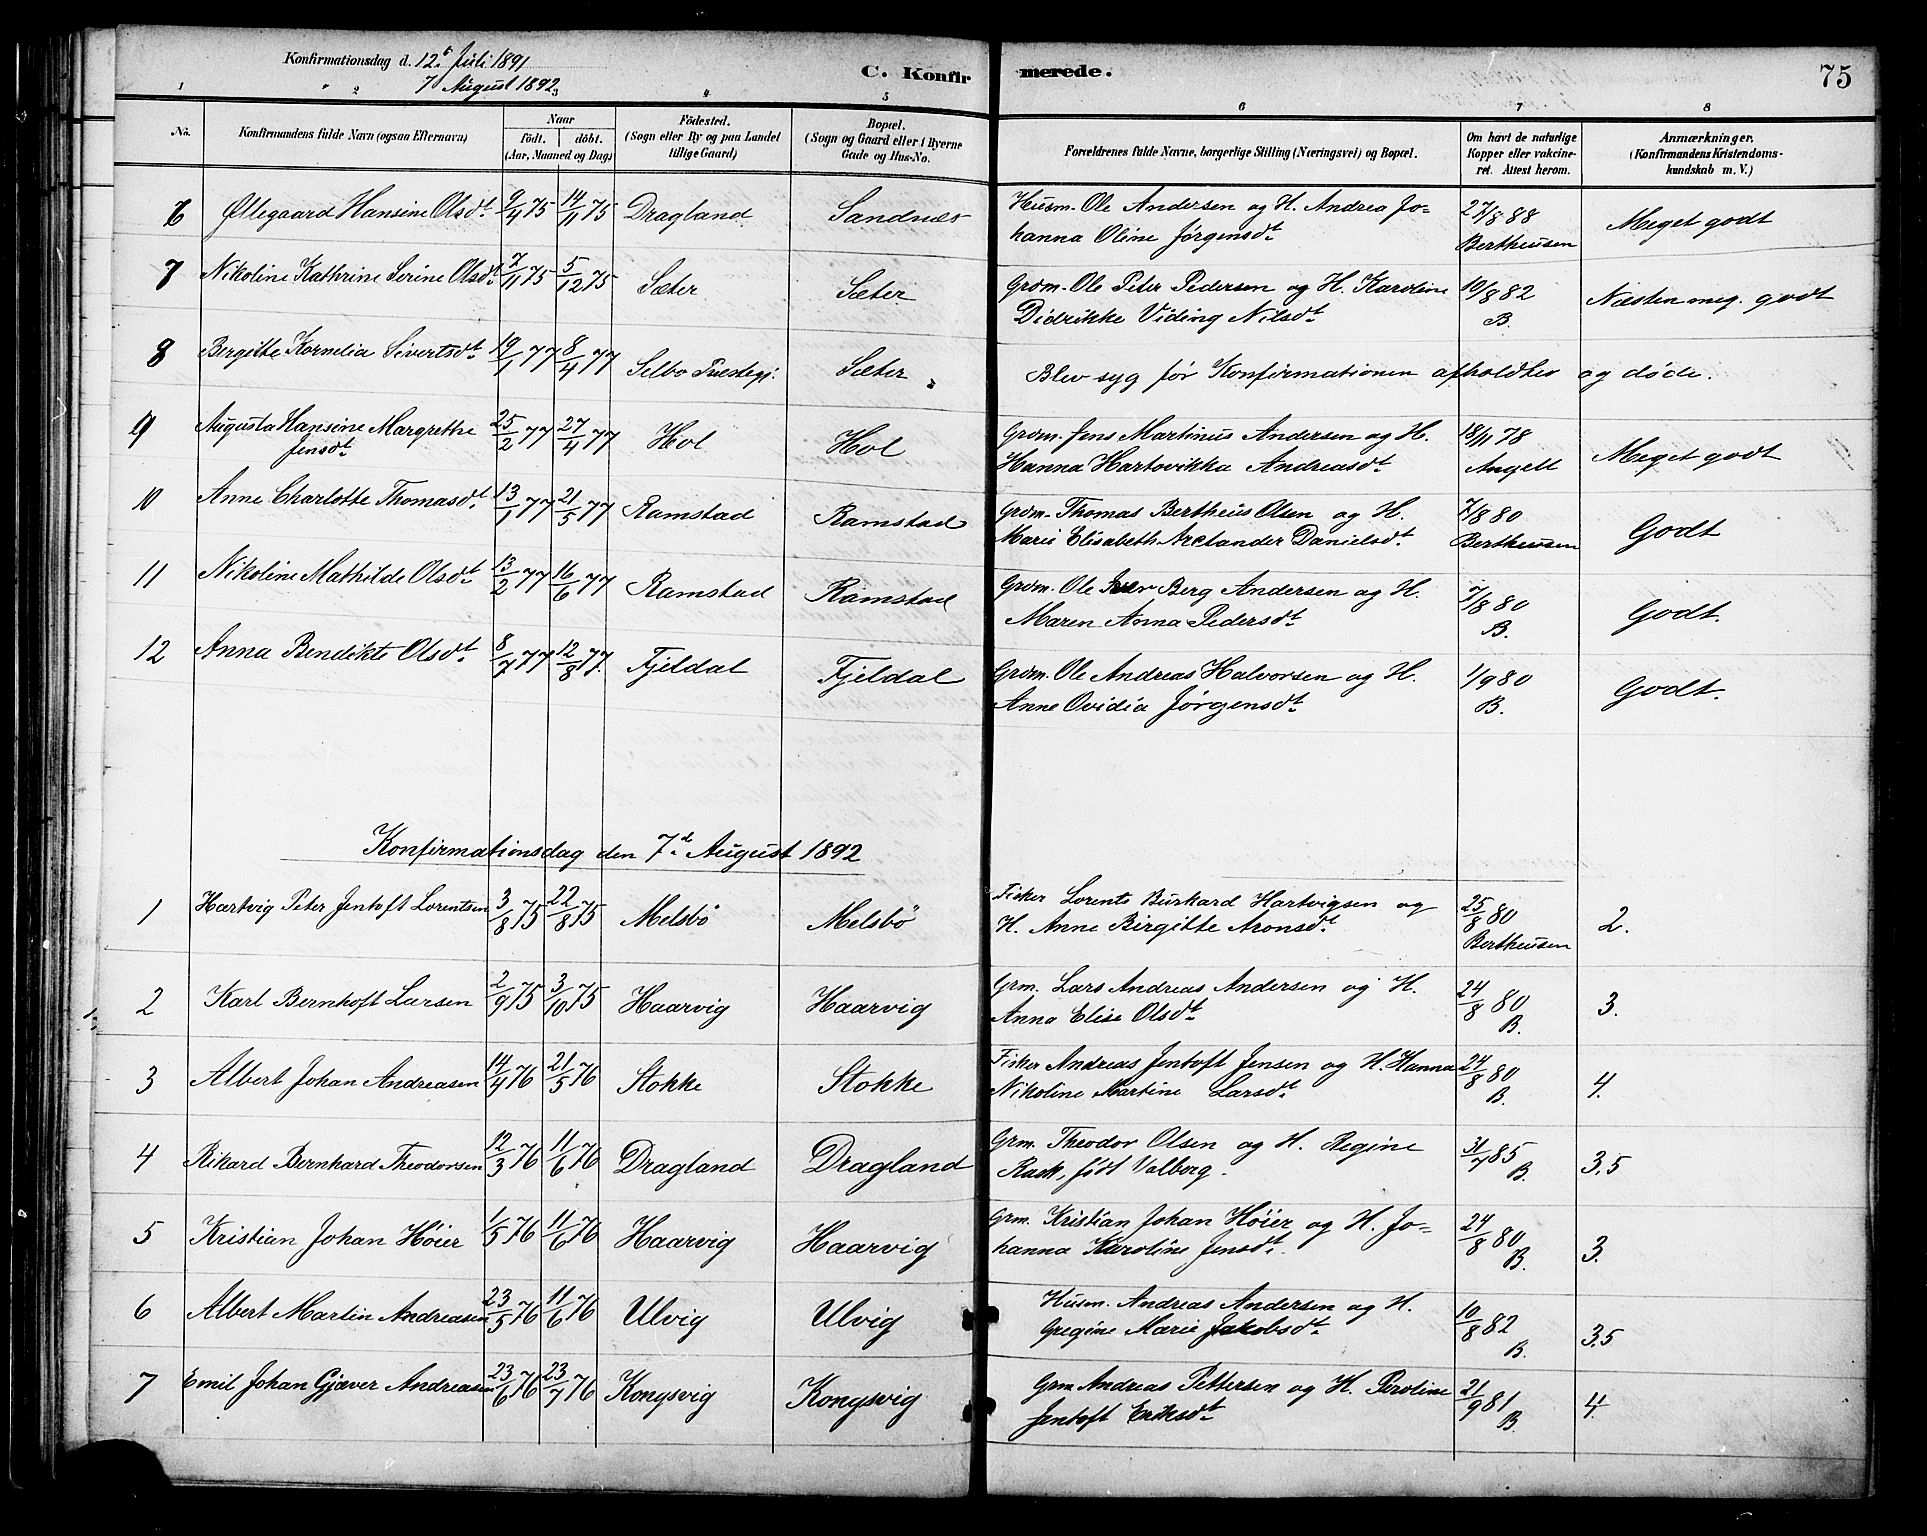 Konfirmationsdag d. 12te Juli 1891
7d August 1892
C. Konfirmerede.
75
1 2 3 4 5 6 7 8
No. Konfirmandens fulde Navn (ogsaa Efternavn) Naar födt. döbt. (Aar, Maaned og Dag) Födested. (Sogn eller By og paa Landet tillige Gaard) Bopæl. (Sogn og Gaard eller i Byerne Gade og Hus-No. Forældrenes fulde Navne, borgerlige Stilling (Næringsvei) og Bopæl. Om havt de naturlige Kopper eller vakcineret. Attest herom. Anmærkninger. (Konfirmandens Kristendomskundskab m. V.)
6 Øllegaard Hansine Olsdt. 9/4 75 14/11 75 Dragland Sandnes Husm. Ole Andersen og H. Andrea Jo=
hanna Oline Jørgensdt. 27/8 88 Bertheusen Meget godt
7 Nikoline Kathrine Serine Olsdt. 7/11 75 5/12 75 Sæter Sæter Grdm. Ole Peter Pedersen og H. Karoline
Didrikke Viding Nilsdt. 10/8 82 B. Næsten meg. godt
8 Bergitte Kornelia Sivertsdt. 19/1 77 8/4 77 Selbo Præstegj. Sæter Blev syg før Konfirmationen afholdtes og døde.
9 Augusta Hansine Margrethe
Jensdt. 25/2 77 27/4 77 Hol Hol Grdm. Jens Martinus Andersen og H.
Hanna Hartvikka Andreasdt. 18/11 78 Angell Meget godt
10 Anne Charlotte Thomasdt. 13/1 77 21/5 77 Ramstad Ramstad Grdm. Thomas Bertheus Olsen og H.
Marie Elisabeth Arelander Danielsdt. 7/8 80 Bertheusen Godt
11 Nikoline Mathilde Olsdt. 13/2 77 16/6 77 Ramstad Ramstad Grdm. Ole Iver Berg Andersen og H.
Maren Anna Pedersdt. 7/8 80 B. Godt.
12 Anna Bendikte Olsdt. 8/7 77 12/8 77. Fjeldal Fjeldal Grdm. Ole Andreas Halvorsen og H.
Anne Ovidia Jørgensdt. 1/9 80 B. Godt.
Konfirmationsdag den 7d. August 1892
1 Hartvig Peter Jentoft Lorentsen 3/8 75 22/8 75 Melsbö Melsbö Fisker Lorents Burkard Hartvigsen og
H. Anne Birgitte Aronsdt. 25/8 80 Bertheusen 2.
2 Karl Bernhoft Larsen 2/9 75 3/10 75 Haarvig Haarvig Grm. Lars Andreas Andersen og H.
Anna Elise Olsdt. 24/8 80 B. 3.
3 Albert Johan Andreasen 14/4 76 21/5 76 Stokke Stokke Fisker Andreas Jentoft Jensen og H. Hanna
Nikoline Martine Larsdt. 24/8 80 B. 4.
4 Rikard Bernhard Theodorsen 12/3 76 11/6 76 Dragland Dragland Grm. Theodor Olsen og H. Regine
Rask, født Valberg. 31/7 85 B. 3,5
5 Kristian Johan Høier 1/5 76 11/6 76 Haarvig Haarvig Grm. Kristian Johan Høier og H. Jo=
hanna Karoline Jensdt. 24/8 80 B. 3.
6 Albert Martin Andreasen 23/5 76 11/6 76 Ulvig Ulvig Husm. Andreas Andersen og H.
Gregine Marie Jakobsdt. 10/8 82 B. 3,5
7 Emil Johan Gjæver Andreasen 23/6 76 23/7 76 Kongsvig Kongsvig Grm Andreas Pettersen og H. Peroline
Jentoft Eriksdt. 21/9 81 B. 4.